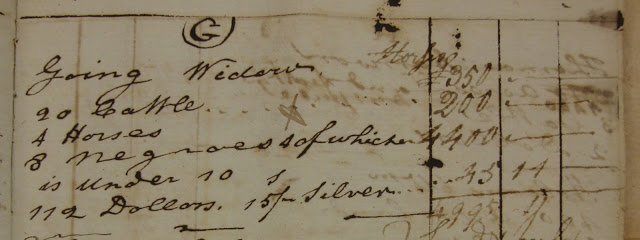 G
Going Widow
20 Cattle 350
4 Horses 200
8 Negroes 4 of which 4400
is Under 10
112 Dollors. 15/ Silver 45 14
4995